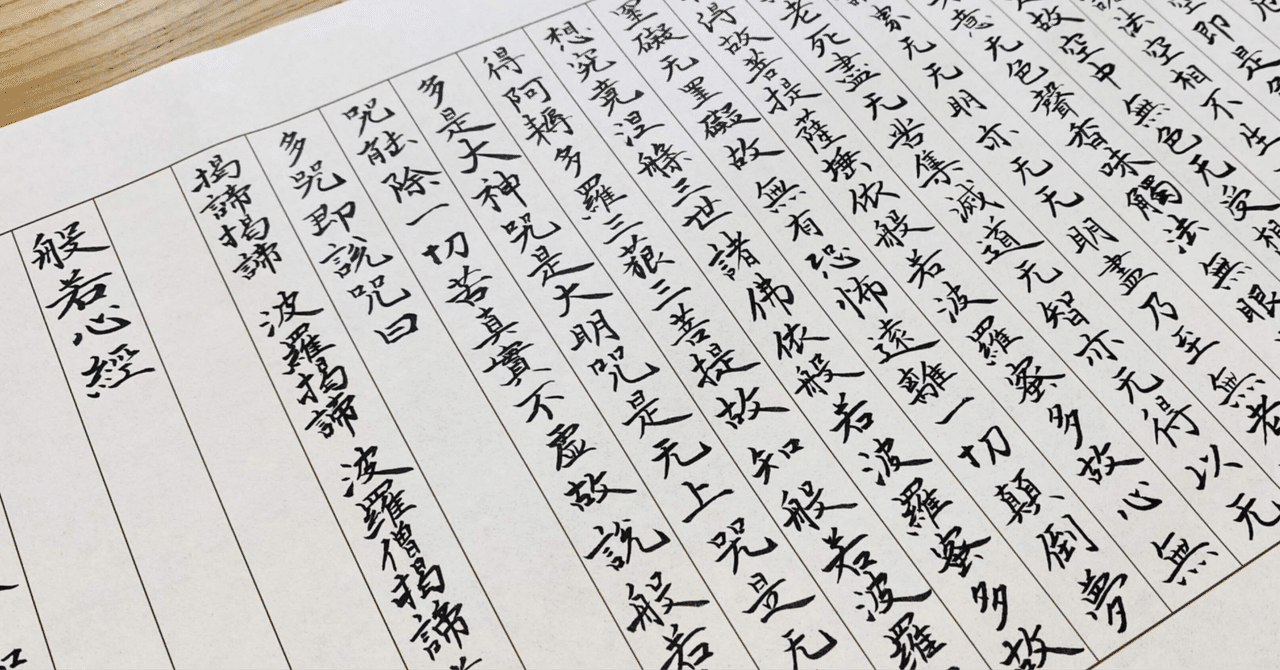 即是
法空相不生
故空中無色无受想
意无色聲香味觸法無眼
界无无明亦无无明盡乃至無老
老死盡无苦集滅道无智亦无得以无
得故菩提薩埵依般若波羅蜜多故心無
罣礙无罣礙故無有恐怖遠離一切顛倒夢
想究竟涅槃三世諸佛依般若波羅蜜多故
得阿耨多羅三藐三菩提故知般若波羅
多是大神咒是大明咒是无上咒是无
咒能除一切苦真實不虛故說般若
多咒即說咒曰
揭諦揭諦 波羅揭諦 波羅僧揭諦
般若心經